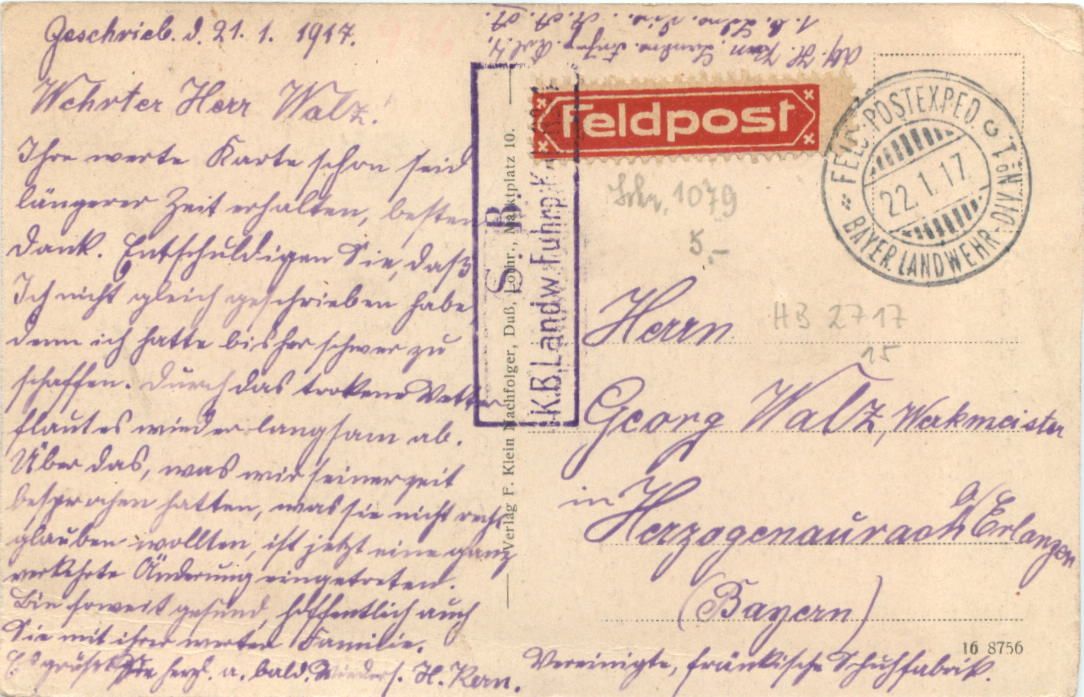 Geschrieb. d. 21. 1. 1917.
Wehrter Herr Walz!
Ihre werte Karte schon seid
längerer Zeit erhalten, besten
Dank. Entschuldigen Sie, daß
Ich nicht gleich geschrieben habe,
denn ich hatte bisher schwer zu
schaffen. Durch das trokene Wetter
flaut es wieder langsam ab.
Über das, was wir seinerzeit
besprochen hatten, was sie nicht recht
glauben wollten, ist jetzt eine ganz
verkehrte Änderung eingetreten.
Bin soweit gesund, hoffentlich auch
Sie mit ihrer werten Familie.
Es grüßt Sie herzl. a. bald. Wieders. H. Kern.
S. B.
K.B. Landw. Fuhrp. K
Verlag F. Klein Nachfolger, Duß, Lothr., Marktplatz 10.
Feldpost
FELD-POSTEXPED
22.1.17.
BAYER. LANDWEHR-DIV. No 1.
1079
5,-
HB 2717
15
Herrn
Georg Walz, Werkmeister
in Herzogenaurach a/Erlangen
(Bayern)
Vereinigte, fränkische Schuhfabrik.
16 8756